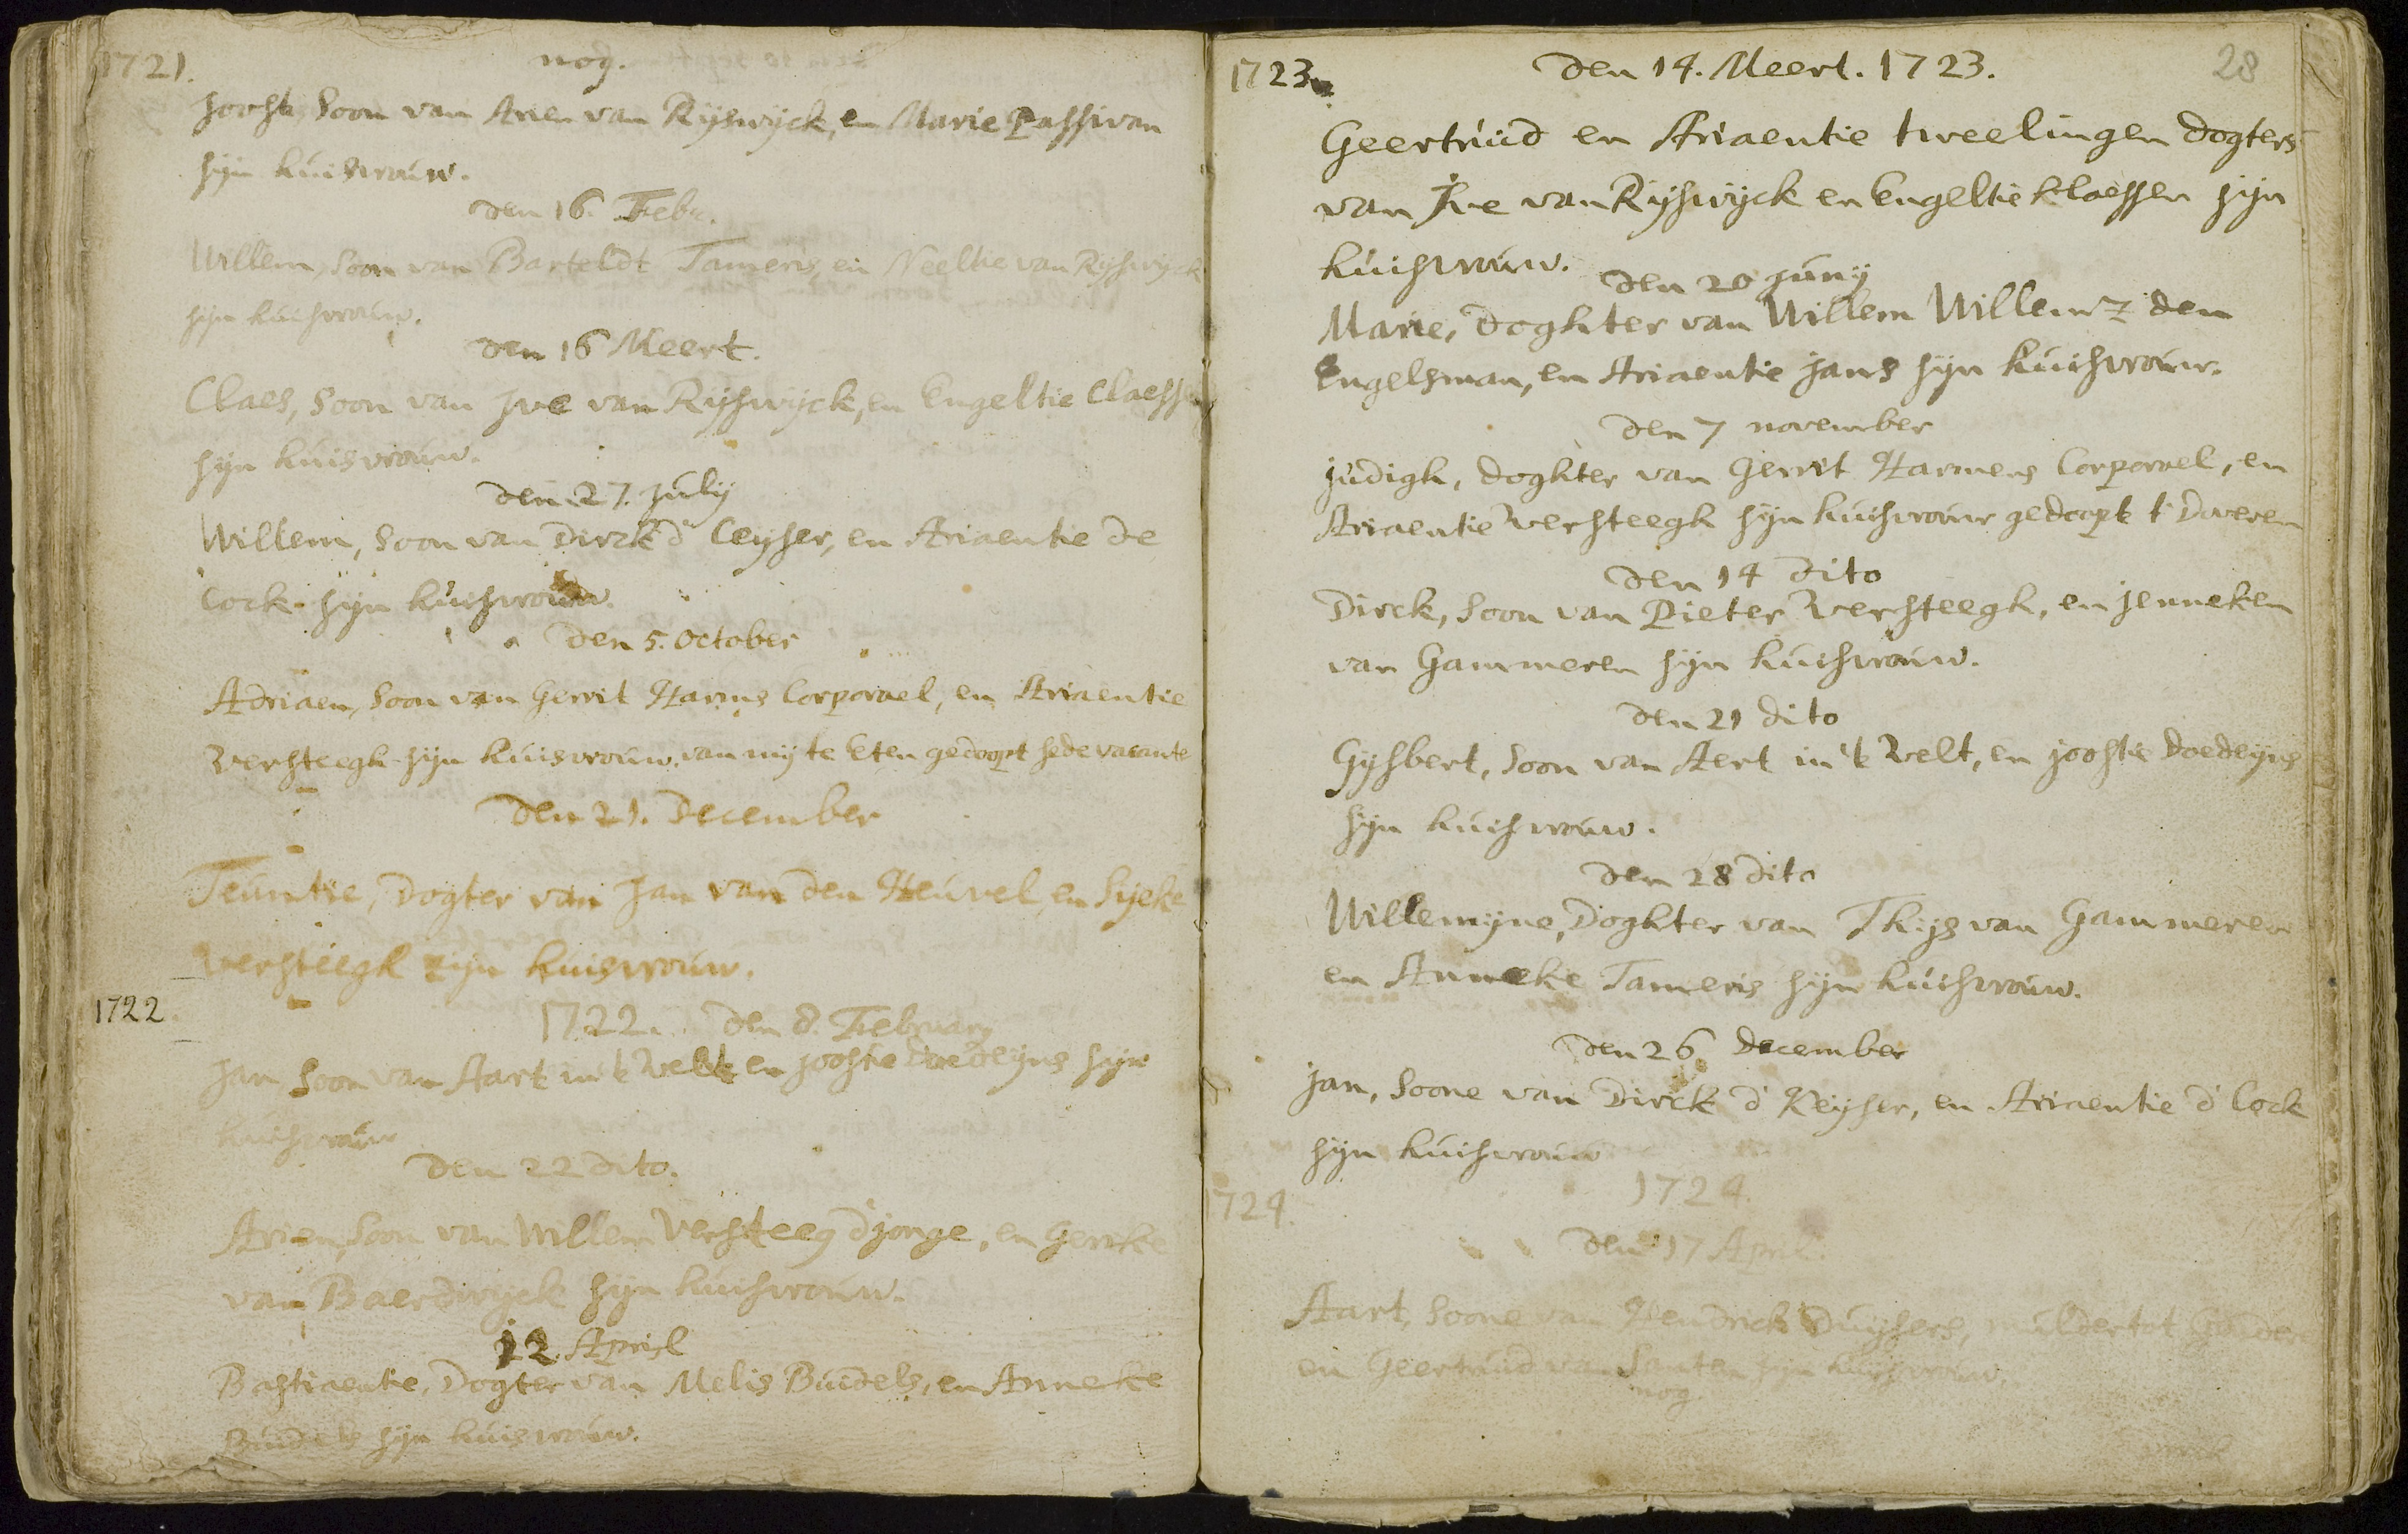 1721.
nog.
Joost, Soon van Arien van Rijswijck, en Marie Passivan
sijn huisvrouw.
den 16. Febr.
Willem, Soon van Barteldt Tameris, en Neeltie van Rijswijck
sijn huisvrouw.
den 16 Meert.
Claes, Soon van Ive van Rijswijck, en Engeltie Claesse
sijn huisvrouw.
den 27. July
Willem, Soon van Dirck d' Ceyser, en Ariaentie de
Cock sijn huisvrouw.
den 5. October
Adriaen, Soon van Gerrit Harms Corporael, en Ariaentie
Versteegh sijn huisvrouw, van mij te Eten gedoopt sede vacante
den 21. December
Teuntie, Dogter van Jan van den Heuvel, en Sijeke
Versteegh zijn huisvrouw.
1722.
1722. den 8. February
Jan Soon van Aart in 't Velt en Joostie Doedeijns sijn
huisvrouw
den 22 dito.
Arien, Soon van Willem Versteeg d'jonge, en Gerrike
van Baerdwyck sijn huisvrouw.
12. April
Bastiaentie, Dogter van Melis Buidels, en Anneke
Buidels sijn huisvrouw.
1723.
den 14. Meert. 1723.
28
Geertruid en Ariaentie tweelingen dogters
van Ive van Rijswijck en Engeltie Klaessen sijn
huisvrouw.
den 20 Juny
Marie, Doghter van Willem Willemz den
Engelsman, en Ariaentie Jans sijn huisvrouw.
den 7 november
Judigh, doghter van Gerrit Harmens Corporael, en
Ariaentie Versteegh sijn huisvrouw gedoopt t' Doeveren
den 14 dito
Dirck, Soon van Pieter Versteegh, en Jenneken
van Gammeren sijn huisvrouw.
den 21 dito
Gysbert, Soon van Aert in 't Velt, en Joostie Doedeijns
sijn huisvrouw.
den 28 dito
Willemijne, Doghter van Thijs van Gammeren
en Anneke Tameris sijn huisvrouw.
den 26 December
Jan, Soone van Dirck d' Keyser, en Ariaentie d' Cock
sijn huisvrouw
1724.
1724.
den 17 April.
Aart, Soone van Hendrick Duysers, mulder tot
en Geertruid van Santen sijn huysvrouw.
nog